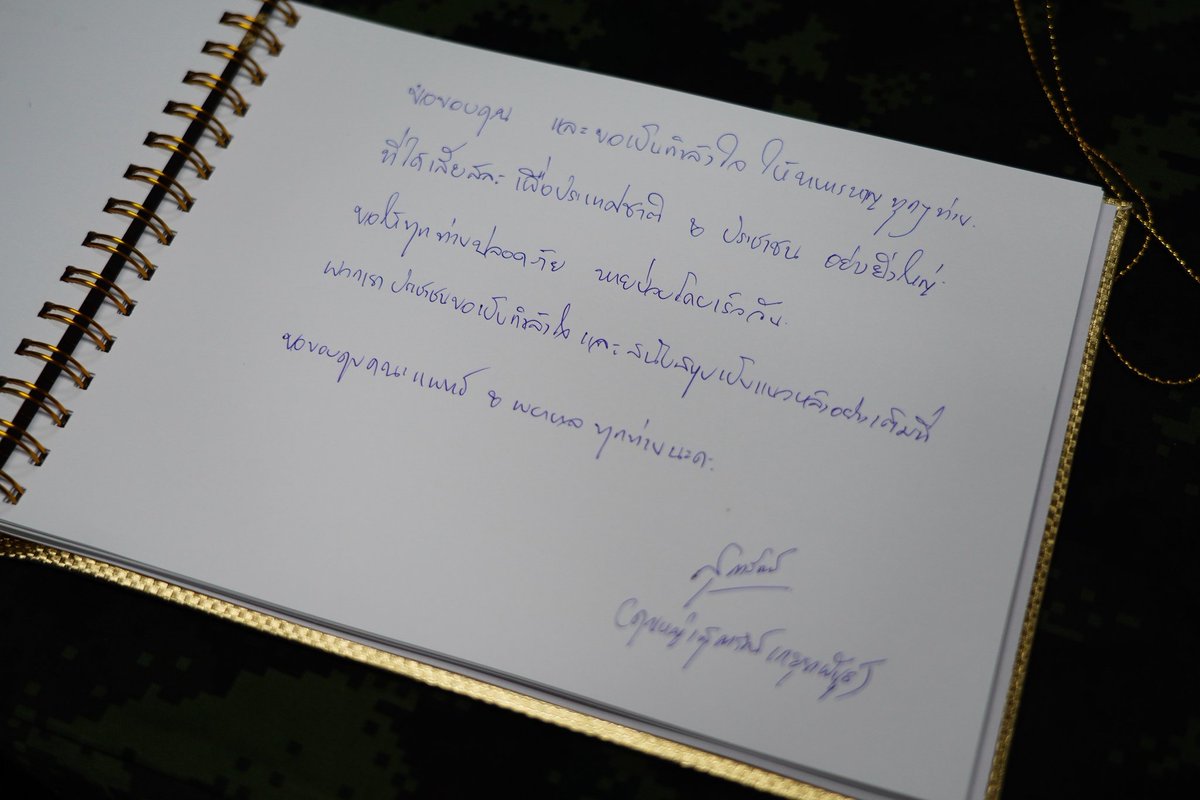 ขอขอบคุณ และขอเป็นกำลังใจ ให้ทหารหาญ ทุกๆ ท่าน.
ที่ได้เสียสละ เพื่อประเทศชาติ & ประชาชน อย่างยิ่งใหญ่.
ขอให้ทุกท่านปลอดภัย หายป่วยโดยเร็ววัน.
พวกเรา ประชาชนขอเป็นกำลังใจ และ สนับสนุนเป็นแนวหลังอย่างเต็มที่
ขอขอบคุณคณะแพทย์ & พยาบาล ทุกท่านนะคะ.
สุดารัตน์
(คุณหญิงสุดารัตน์ เกยุราพันธุ์)